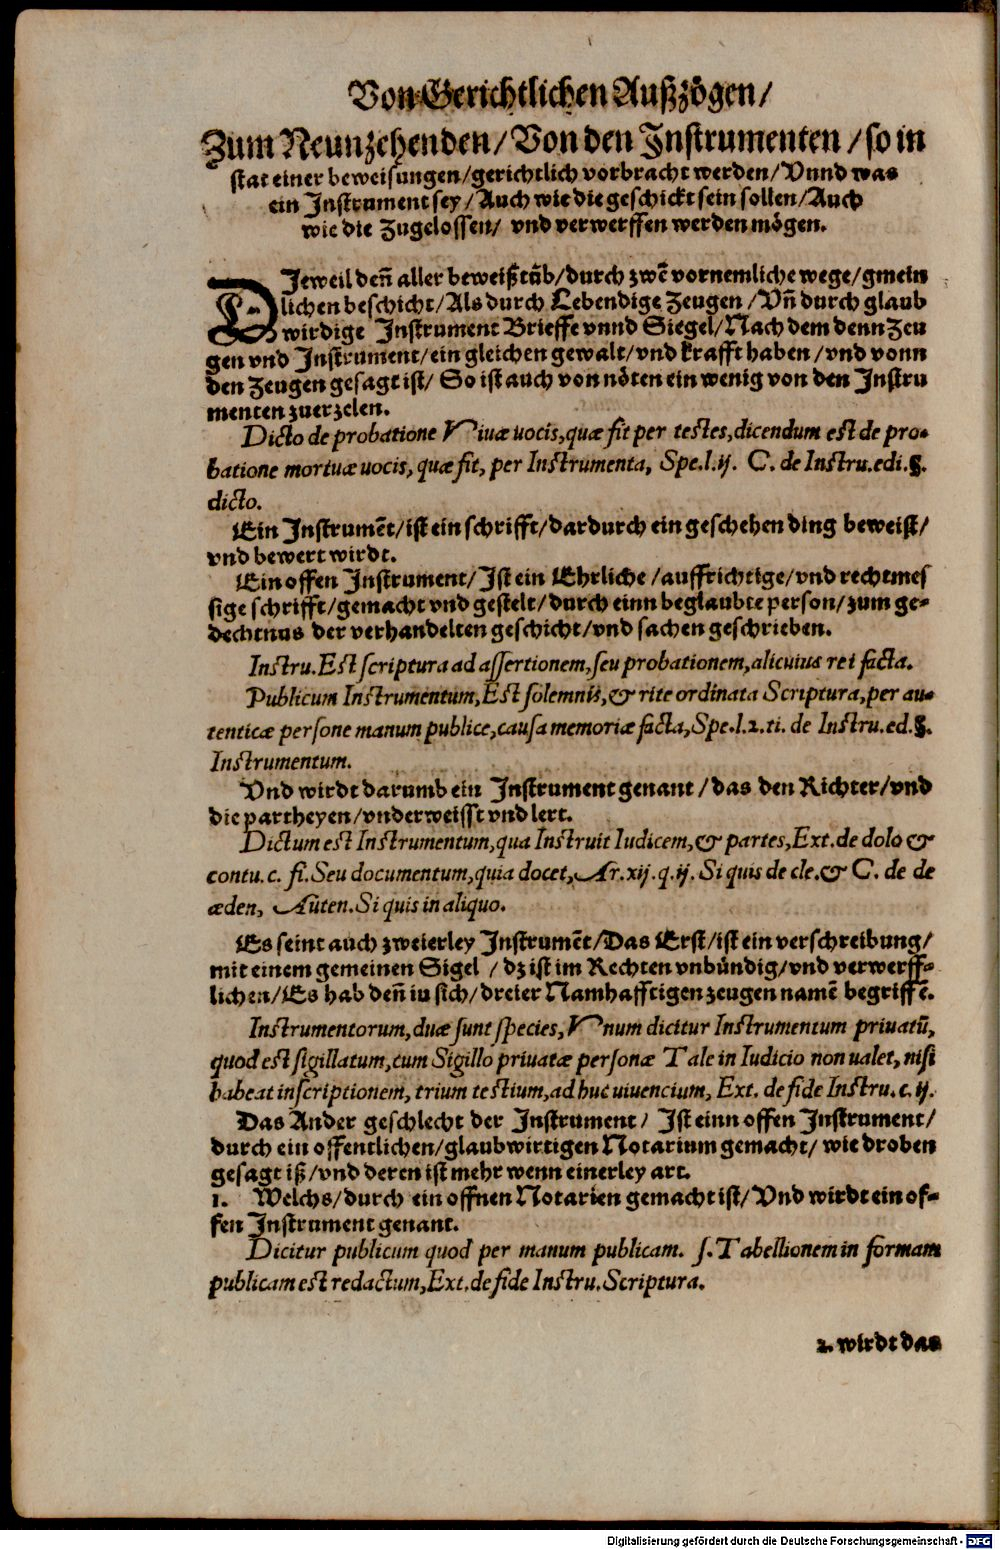 Von Gerichtlichen Außzögen/
Zum Neunzehenden/Von den Instrumenten/so in
stat einer beweisungen/gerichtlich vorbracht werden/Vnnd was
ein Instrument sey/Auch wie die geschickt sein sollen/Auch
wie die Zugelossen/ vnd verwerffen werden mögen.
DJeweil deñ aller beweißtũb/durch zwẽ vornemliche wege/gmein
lichen beschicht/Als durch Lebendige Zeugen/Vñ durch glaub
wirdige Instrument Brieffe vnnd Siegel/Nach dem denn Zeu
gen vnd Instrument/ein gleichen gewalt/vnd krafft haben/vnd vonn
den Zeugen gesagt ist/ So ist auch von nöten ein wenig von den Instru
menten zuerzelen.
Dicto de probatione Viuæ uocis,quæ fit per testes,dicendum est de pro-
batione mortuæ uocis, quæ fit, per Instrumenta, Spe.l.ij. C. de Instru.edi.§.
dicto.
Ein Instrumẽt/ist ein schrifft/dardurch ein geschehen ding beweist/
vnd bewert wirdt.
Ein offen Instrument/Ist ein Ehrliche/auffrichtige/vnd rechtmes
sige schrifft/gemacht vnd gestelt/durch einn beglaubte person/zum ge-
dechtnus der verhandelten geschicht/vnd sachen geschrieben.
Instru.Est scriptura ad assertionem,seu probationem,alicuius rei facta.
Publicum Instrumentum,Est solemnis,& rite ordinata Scriptura,per au-
tenticæ persone manum publice,causa memoriæ facta,Spe.l.2.ti. de Instru.ed.§.
Instrumentum.
Vnd wirdt darumb ein Instrument genant/das den Richter/vnd
die partheyen/vnderweisst vnd lert.
Dictum est Instrumentum,qua Instruit Iudicem,& partes,Ext.de dolo &
contu.c. fi.Seu documentum,quia docet,Ar.xij.q.ij. Si quis de cle.& C. de de
æden, Aũten.Si quis in aliquo.
Es seint auch zweierley Instrumẽt/Das Erst/ist ein verschreibung/
mit einem gemeinen Sigel /dz ist im Rechten vnbündig/vnd verwerff-
lichen/Es hab deñ iu sich/dreier Namhafftigen zeugen namẽ begriffẽ.
Instrumentorum,duæ sunt species,Vnum dicitur Instrumentum priuatũ,
quod est sigillatum,cum Sigillo priuatæ personæ Tale in Iudicio non ualet, nisi
habeat inscriptionem, trium testium,ad huc uiuencium, Ext. de fide Instru.c.ij.
Das Ander geschlecht der Instrument/ Ist einn offen Instrument/
durch ein offentlichen/glaubwirtigen Notarium gemacht/ wie droben
gesagt iß/vnd deren ist mehr wenn einerley art.
1. Welchs/durch ein offnen Notarien gemacht ist/Vnd wirdt ein of-
fen Instrument genant.
Dicitur publicum quod per manum publicam. ſ.Tabellionem in formam
publicam est redactum,Ext.de fide Instru.Scriptura.
2. wirdt das
Digitalisierung gefördert durch die Deutsche Forschungsgemeinschaft - DFG